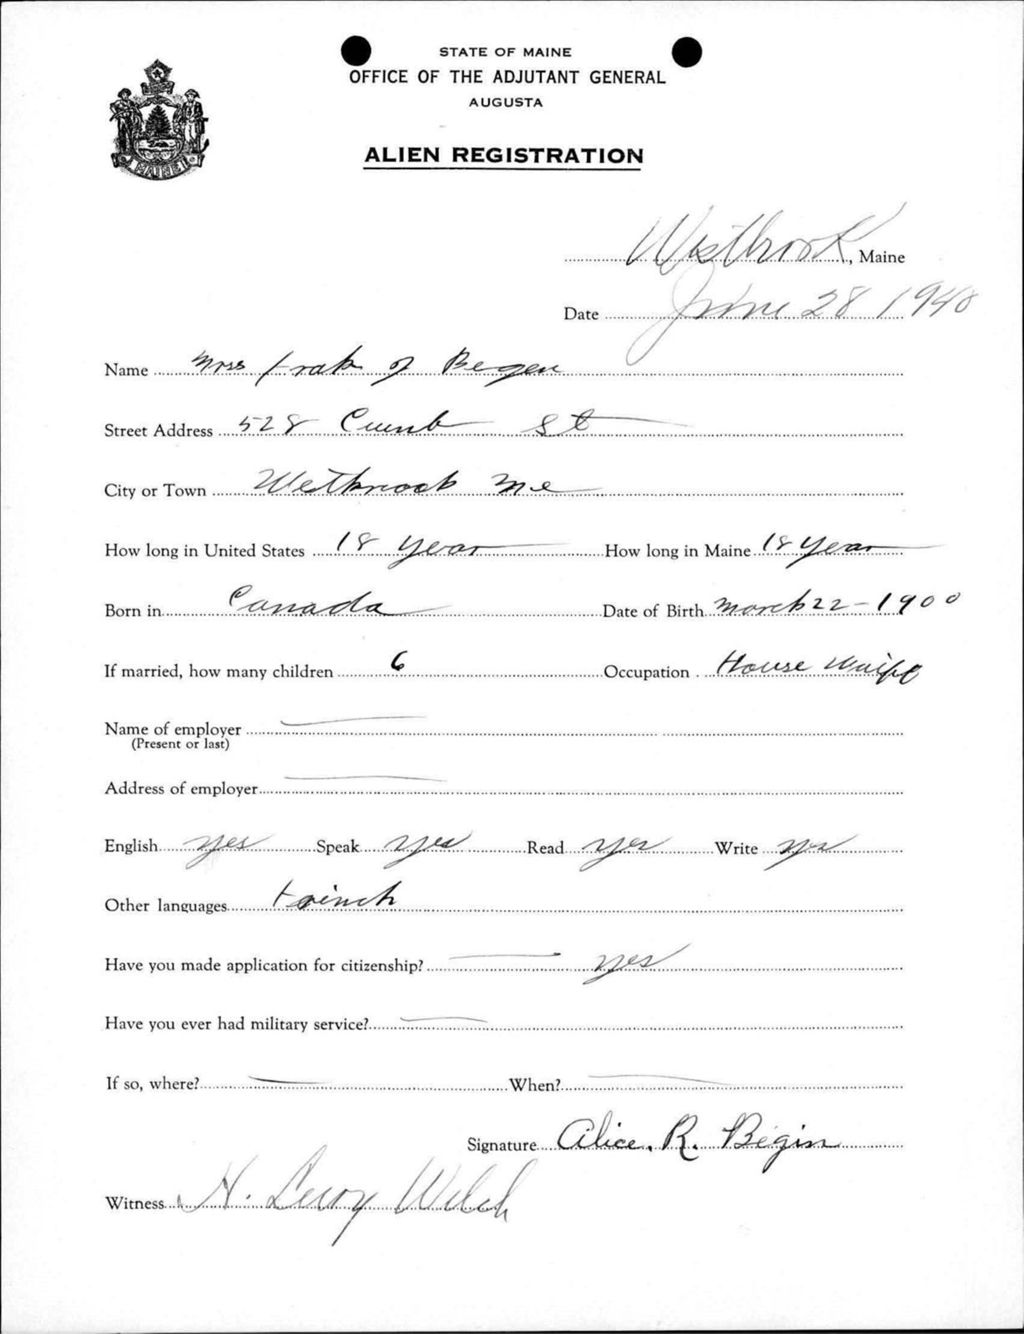 STATE OF MAINE
OFFICE OF THE ADJUTANT GENERAL
AUGUSTA
ALIEN REGISTRATION
MAINE
Westbrook, Maine
Date June 28 1940
Name Mrs Frak J Begen
Street Address 528 Cumb St
City or Town Wetbrook Me
How long in United States 18 year How long in Maine 18 year
Born in Canada Date of Birth March 22 - 1900
If married, how many children 6 Occupation House Waife
Name of employer —
(Present or last)
Address of employer —
English yes Speak yes Read yes Write yes
Other languages Frinch
Have you made application for citizenship? — yes
Have you ever had military service? —
If so, where? — When? —
Signature Alice. R. Bégin
Witness H. Leroy Welch